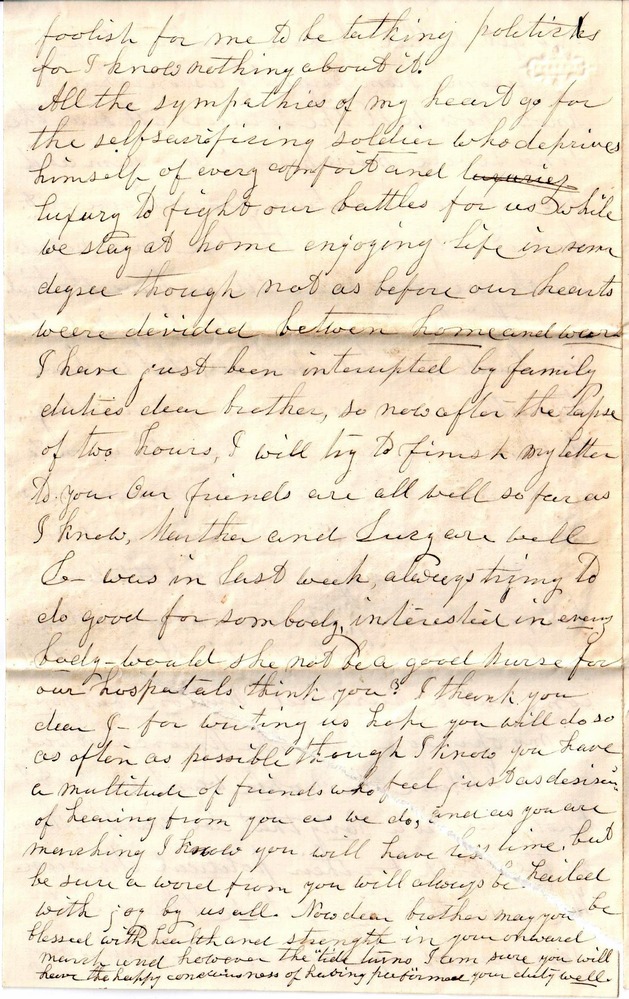 foolish for me to be talking politicks
for I know nothing about it.
All the sympathies of my heart go for
the selfsacrificing soldier who deprives
himself of every comfort and luxuries
luxury to fight our battles for us while
we stay at home enjoying life in some
degree though not as before our hearts
weere devided between home and ward
I have just been interupted by family
duties dear brother, so now after the lapse
of two hours, I will try to finish my letter
to you. Our friends are all well so far as
I know, Marther and Lucy are well
L— was in last week, always trying to
do good for sombody, interested in every
body—would she not be a good nurse for
our hospatals think you? I thank you
dear J— for writing us hope you will do so
as often as possible though I know you have
a multitude of friends who feel just as desirious
of hearing from you as we do, and as you are
marching I know you will have less time, but
be sure a word from you will always be hailed
with joy by us all. Now dear brother may you be
blessed with health and strength in your onward
march and however the tide turns I am sure you will
have the happy conciousness of having performed your duty well.